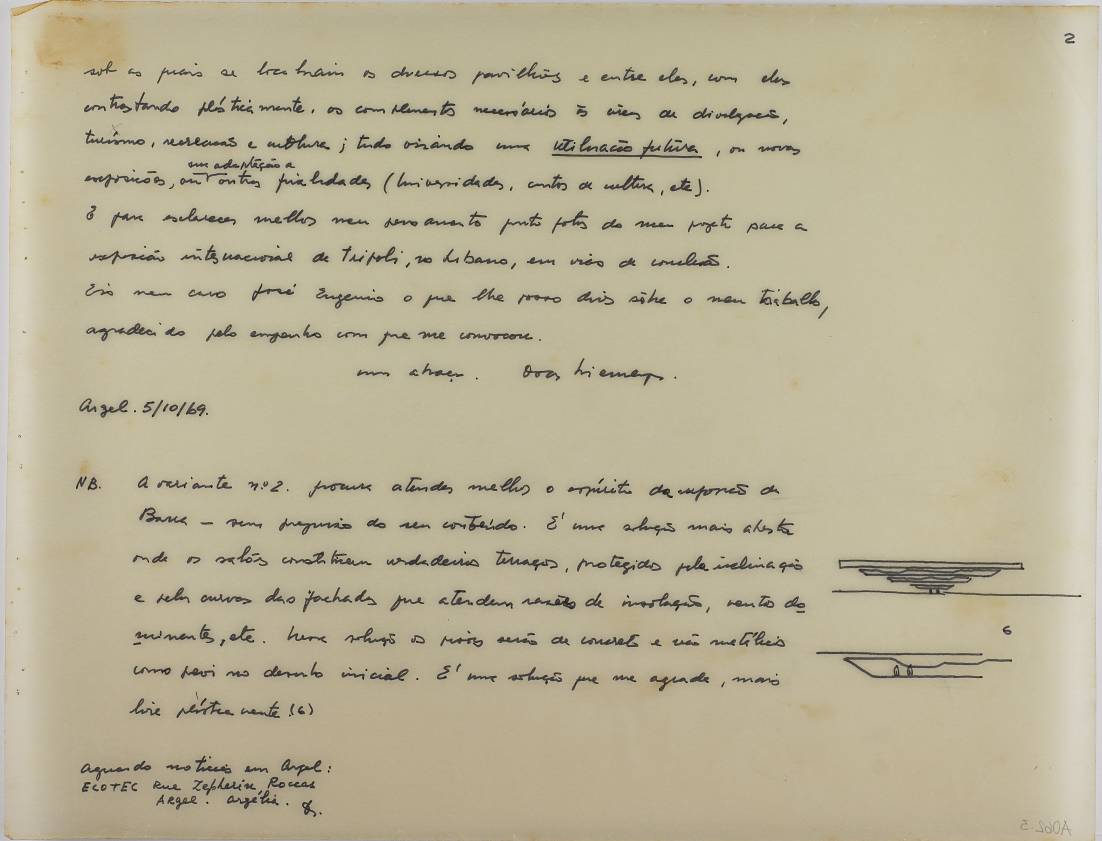 2
sob os quais se localizam os diversos pavilhões e entre eles, com eles
contrastando plásticamente, os complementos necessários às áreas de divulgação,
turismo, recreação e cultura; tudo visando uma utilização futura, ou novas
uma adaptação a
exposições, ou outras finalidades (Universidades, centros de cultura, etc).
E para esclarecer melhor meu pensamento junto fotos do meu projeto para a
exposição internacional de Tripoli, no Libano, em vias de conclusão.
Eis meu caro José Eugenio o que lhe posso dizer sôbre o meu trabalho,
agradecido pelo empenho com que me convocou.
um abraço. Oscar Niemeyer.
Argel. 5/10/69.
NB. A variante n.º 2. procura atender melhor o espírito da exposição da
Barra – sem prejuizo do seu conteúdo. É uma solução mais aberta
onde os salões constituem verdadeiros terraços, protegidos pela inclinação
e pelas curvas das fachadas que atendem razões de insolação, ventos do
minantes, etc. Nessa solução os pisos serão de concreto e não metálicos
como previ no desenho inicial. É uma solução que me agrada, mais
livre plásticamente (6)
6
Aguardo noticias em Argel:
ECOTEC Rue Zepherin, Roccas
ARgel. Argélia.
A062-5